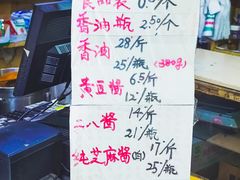 食品袋 0.5/个
香油瓶 2.50/个
香油 28/斤
25/瓶 (380g)
黄豆酱 6.5/斤
12/瓶
二八酱 14/斤
21/瓶
纯芝麻酱(白) 17/斤
25/瓶